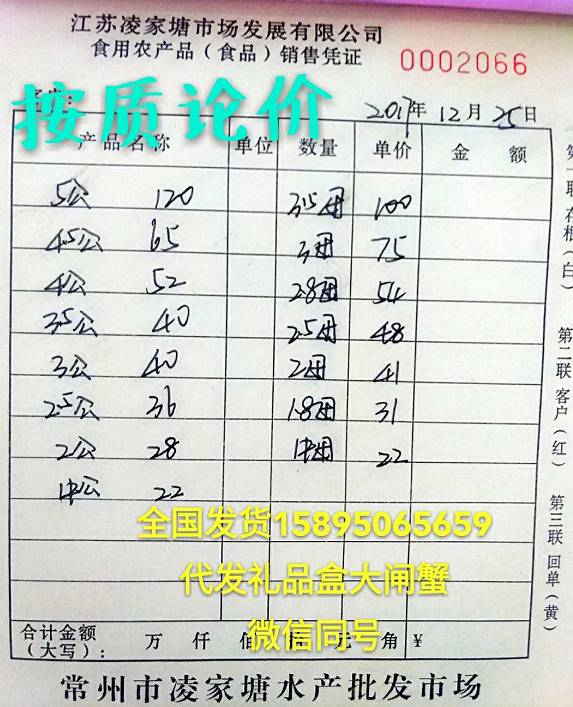 江苏凌家塘市场发展有限公司
食用农产品（食品）销售凭证
0002066
按质论价
2017年 12月 25日
产品名称 单位 数量 单价 金额
5公 120 3.5母 100
4.5公 65 3母 75
4公 52 2.8母 54
3.5公 40 2.5母 48
3公 40 2母 41
2.5公 36 1.8母 31
2公 28 中母 22
中公 22
全国发货15895065659
代发礼品盒大闸蟹
微信同号
合计金额
（大写）： 万 仟 佰 拾 元 角 ¥
常州市凌家塘水产批发市场
第一联 存根（白）
第二联 客户（红）
第三联 回单（黄）